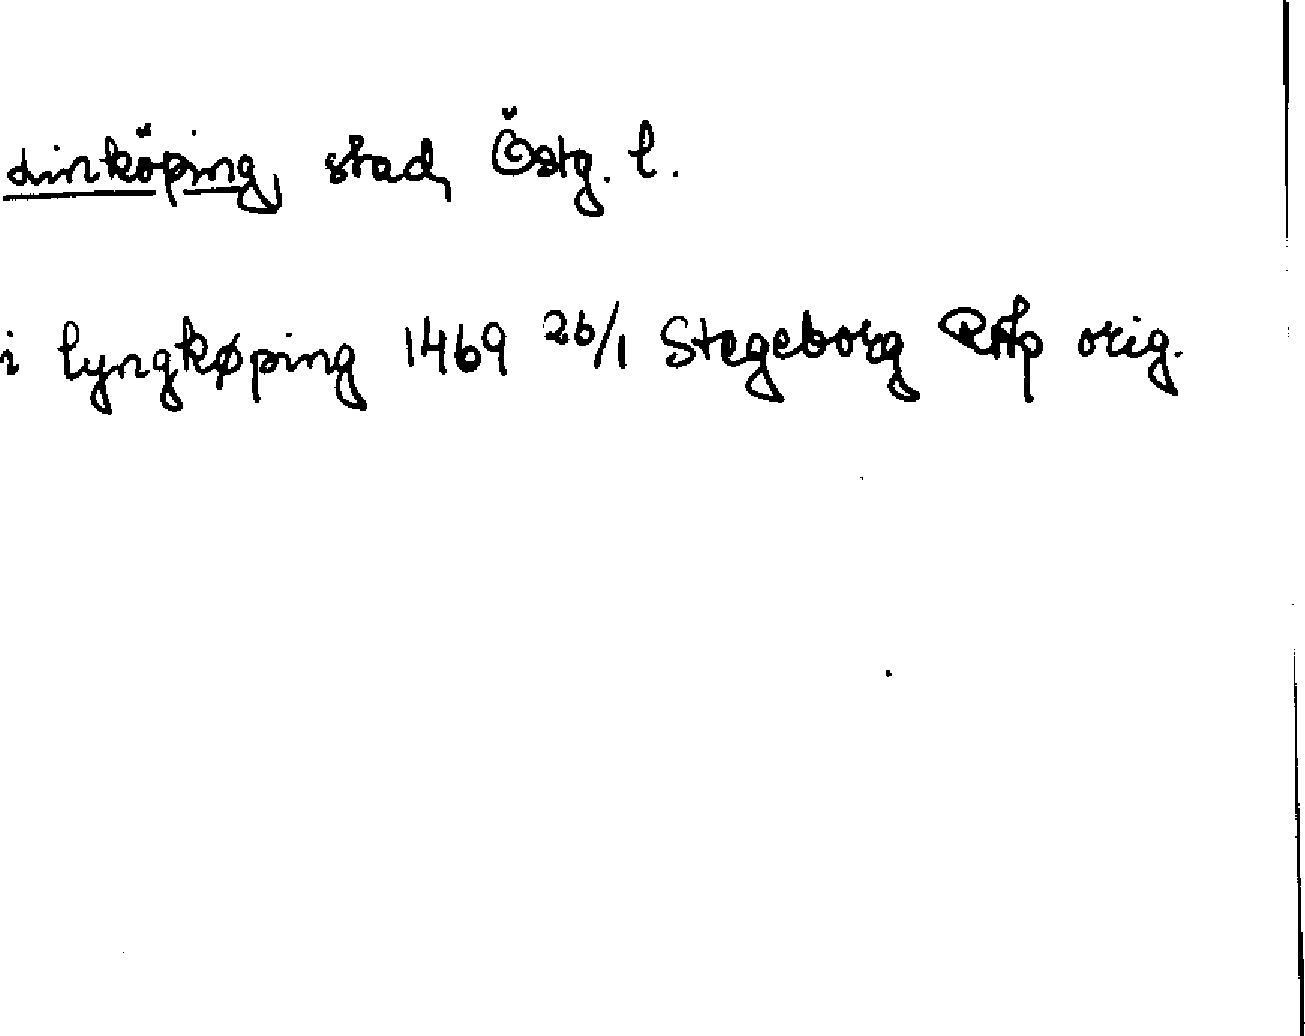 Linköping, stad, Östg. l.
i lyngkøping 1469 26/1 Stegeborg RAp orig.